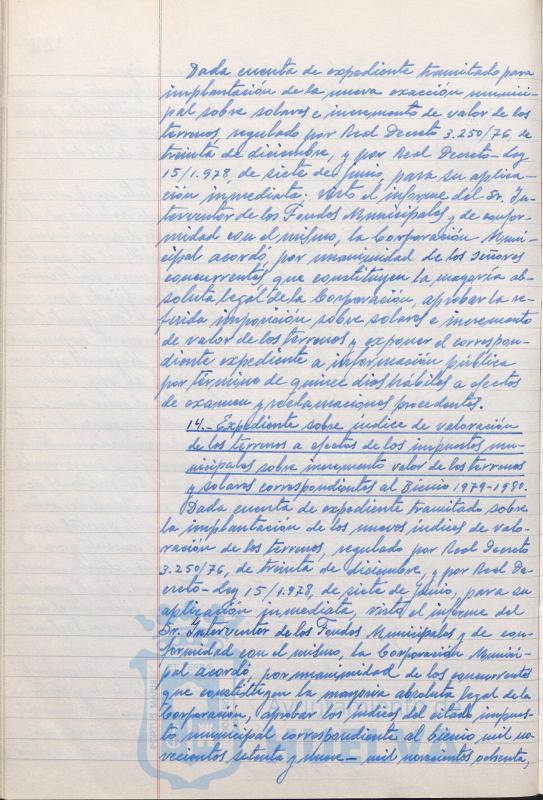 Dada cuenta de expediente tramitado para
implantación de la nueva exacción munici-
pal sobre solares e incremento de valor de los
terrenos, regulado por Real Decreto 3.250/76, de
treinta de diciembre, y por Real Decreto-Ley
15/1.978, de siete de junio, para su aplica-
ción inmediata; visto el informe del Sr. In-
terventor de los Fondos Municipales y de confor-
midad con el mismo, la Corporación Muni-
cipal acordó, por unanimidad de los señores
concurrentes, que constituyen la mayoría ab-
soluta legal de la Corporación, aprobar la re-
ferida imposición sobre solares e incremento
de valor de los terrenos y exponer el correspon-
diente expediente a información pública
por término de quince días hábiles a efectos
de examen y reclamaciones procedentes.
14.- Expediente sobre índice de valoración
de los terrenos a efectos de los impuestos mu-
nicipales sobre incremento valor de los terrenos
y solares correspondientes al Bienio 1979-1980.
Dada cuenta de expediente tramitado sobre
la implantación de los nuevos índices de valo-
ración de los terrenos, regulado por Real Decreto
3.250/76, de treinta de diciembre, y por Real De-
creto-Ley 15/1.978, de siete de junio, para su
aplicación inmediata, visto el informe del
Sr. Interventor de los Fondos Municipales y de con-
formidad con el mismo, la Corporación Munici-
pal acordó, por unanimidad de los concurrentes
que constituyen la mayoría absoluta legal de la
Corporación, aprobar los índices del citado impues-
to municipal correspondiente al bienio mil no-
vecientos setenta y nueve - mil novecientos ochenta,
Ayuntamiento de
HUELVA
PORTUS MARIS